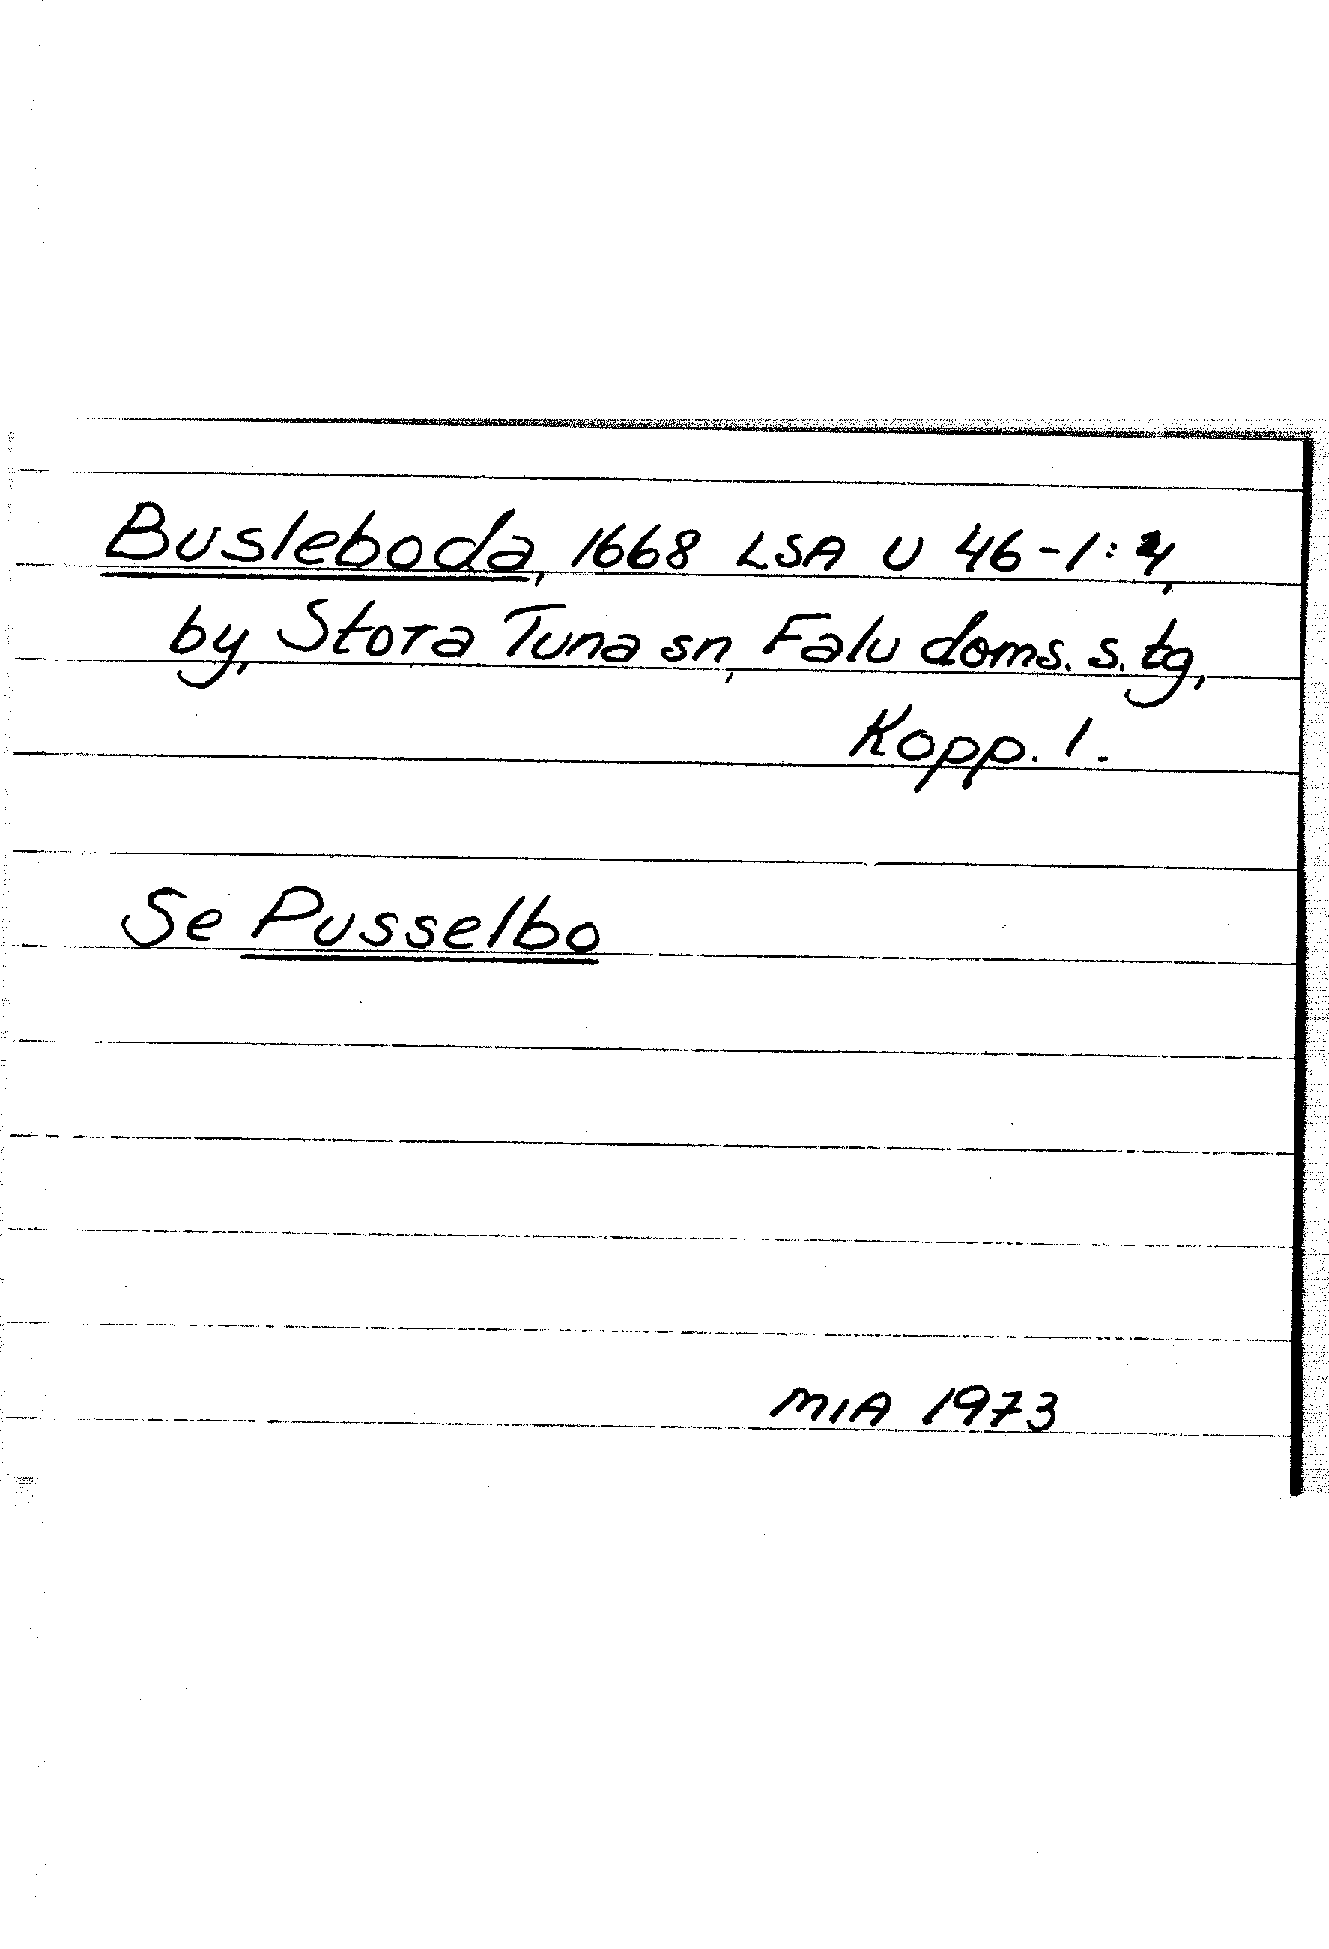 Busleboda, 1668 LSA U 46-1:4,
by, Stora Tuna sn, Falu doms. s. tg,
Kopp. l.
Se Pusselbo
MIA 1973